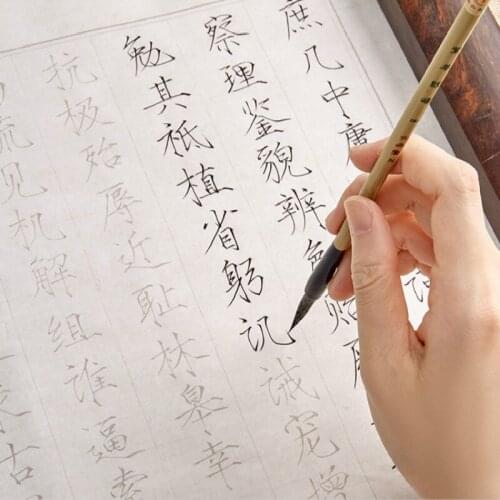 庶几中庸
察理鉴貌辨色贻厥
勉其祗植省躬讥诫宠增
抗极殆辱近耻林皋幸
疏见机解组谁逼索
古